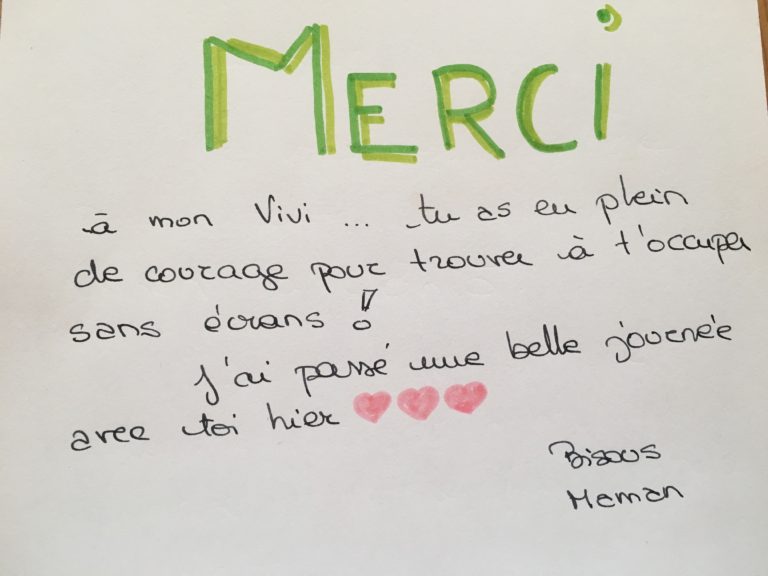 MERCI
à mon Vivi ... tu as eu plein
de courage pour trouver à t'occuper
sans écrans !
J'ai passé une belle journée
avec toi hier
Bisous
Maman